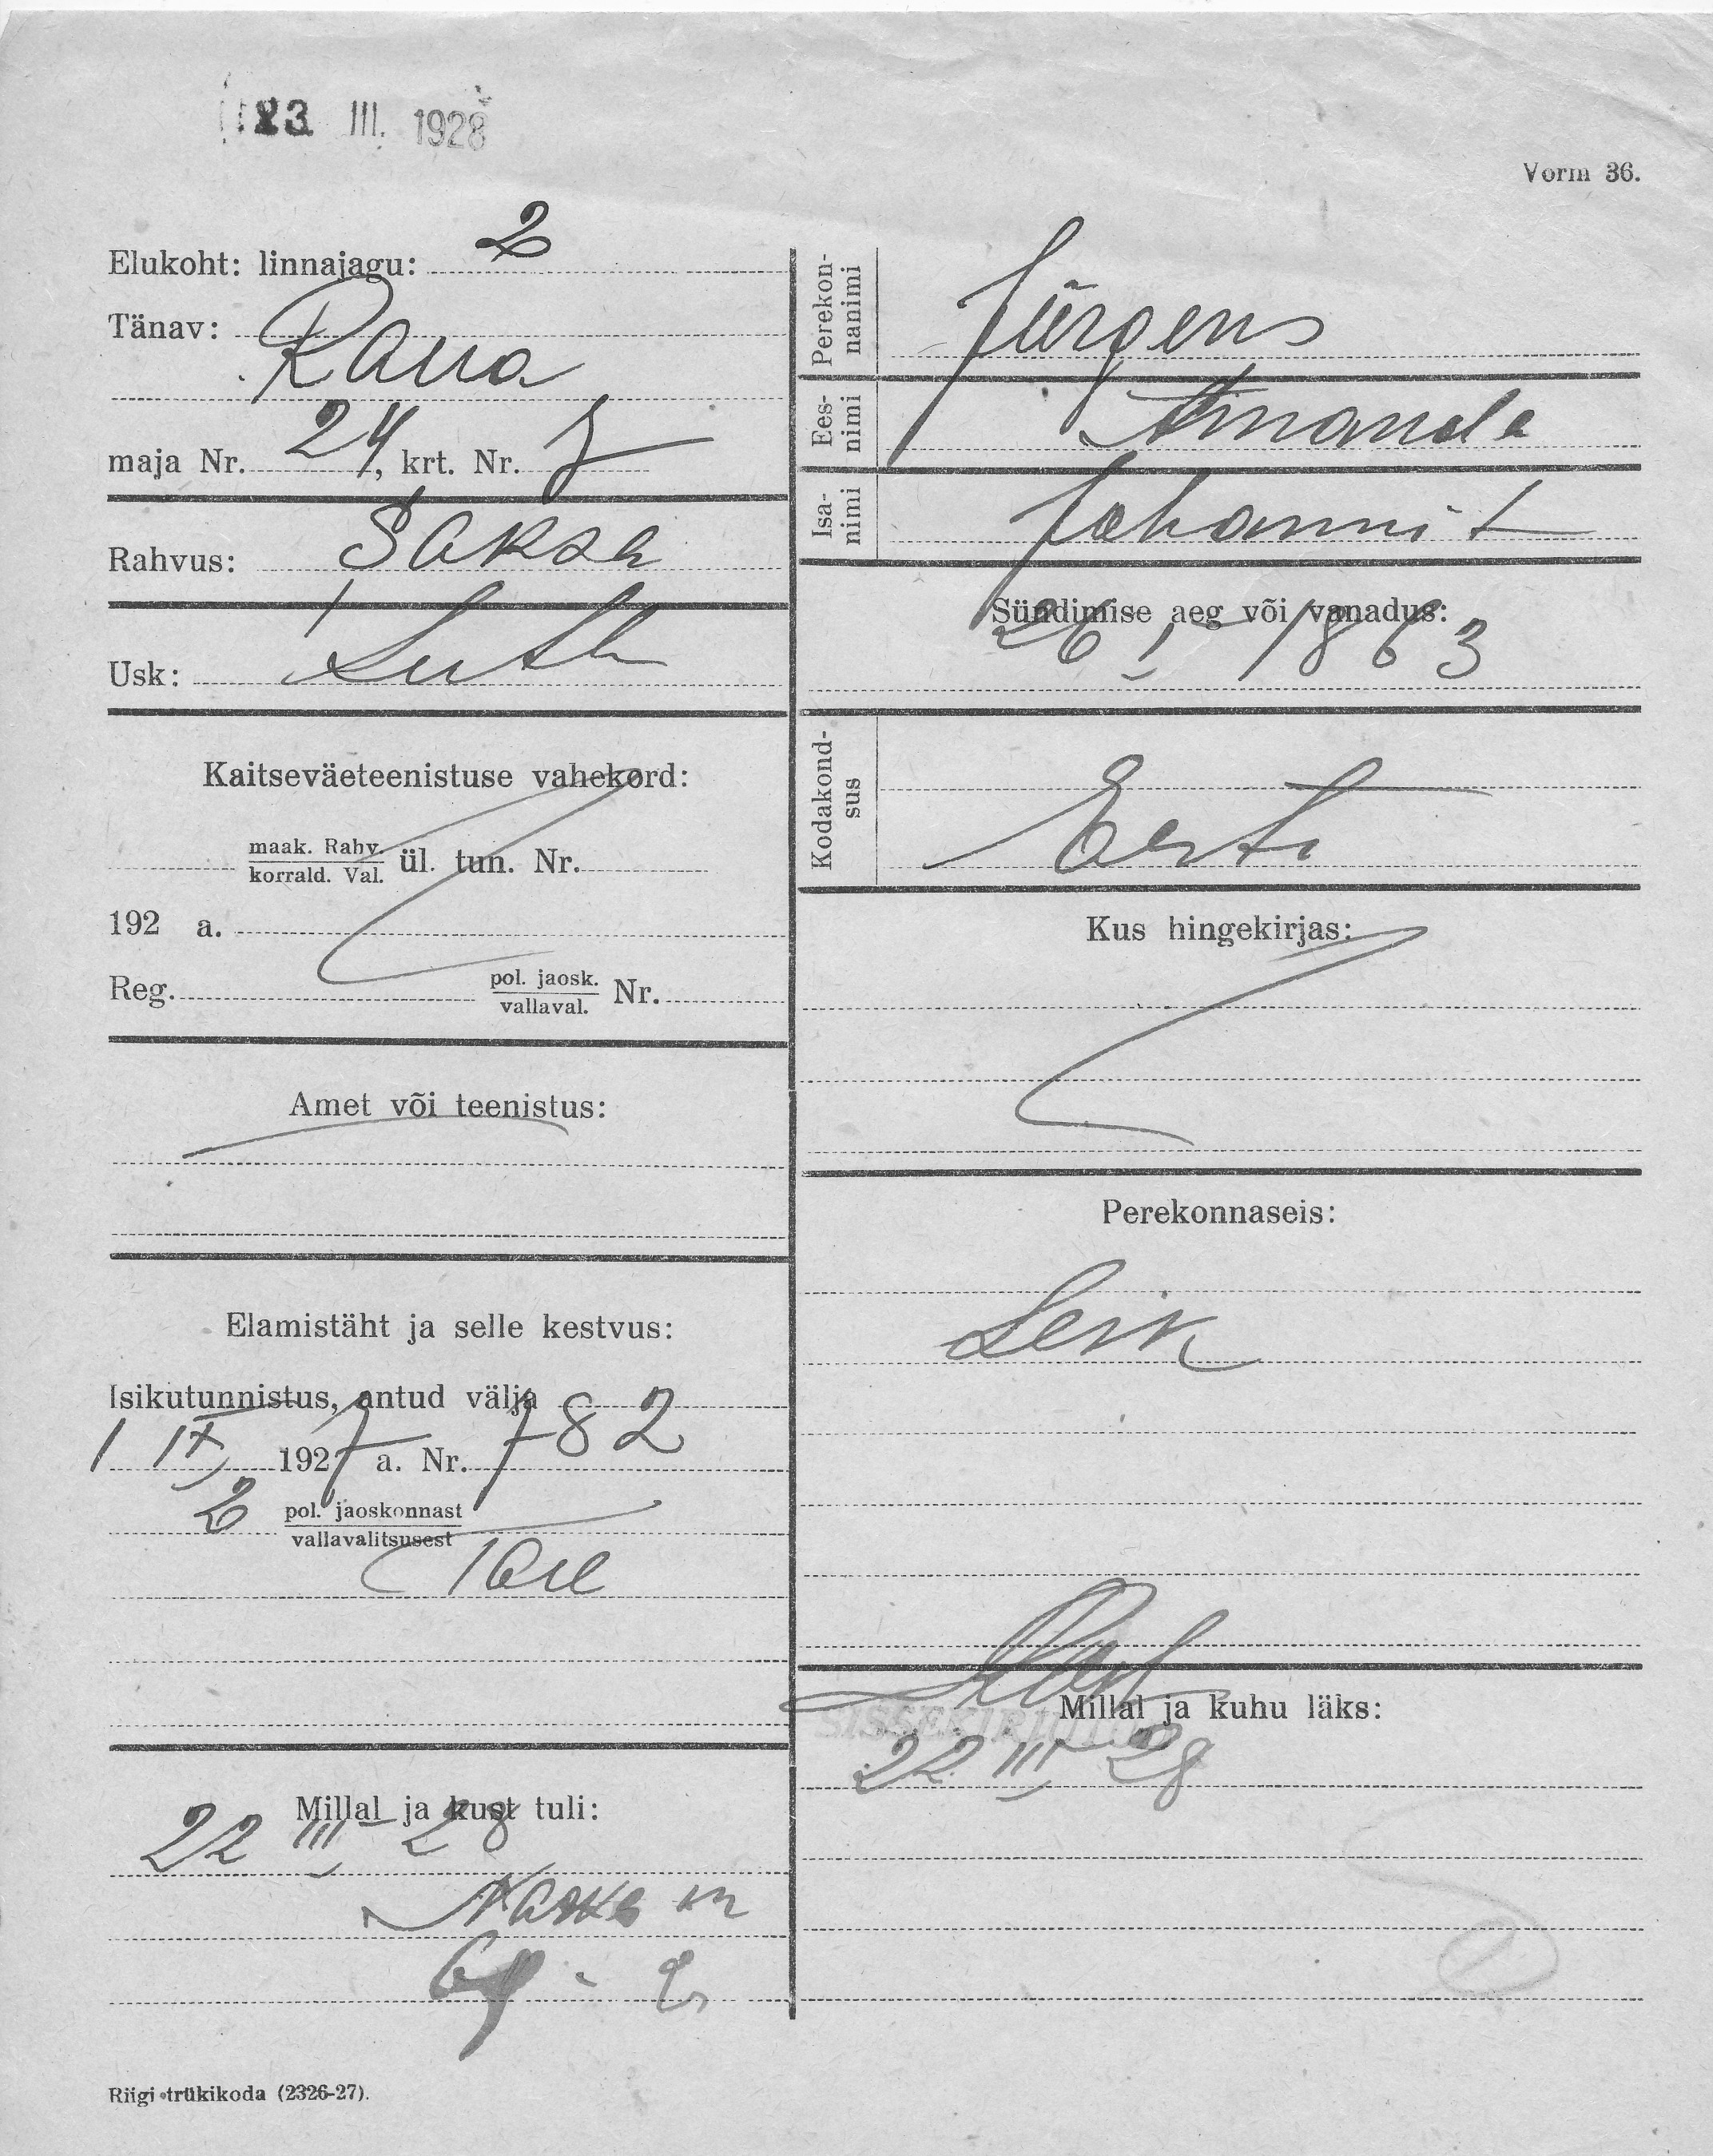 23 III. 1928
Vorm 36.
Elukoht: linnajagu: 2
Tänav:
Raua
maja Nr. 24, krt. Nr. 7
Rahvus: Saksa
Usk: Luth
Kaitseväeteenistuse vahekord:
maak. Rahv.
korrald. Val. ül. tun. Nr.
192 a.
Reg. pol. jaosk.
vallaval. Nr.
Amet või teenistus:
Elamistäht ja selle kestvus:
Isikutunnistus, antud välja
1 IX 1927 a. Nr. 782
2 pol. jaoskonnast
vallavalitsusest
Millal ja kust tuli:
22 III 28
Riigi trükikoda (2326-27).
Perekon-
nanimi Jürgens
Ees-
nimi Amanda
Isa-
nimi Johanni t
Sündimise aeg või vanadus:
26 I 1863
Kodakond-
sus Eesti
Kus hingekirjas:
Perekonnaseis:
Lesk
Millal ja kuhu läks:
22 III 28